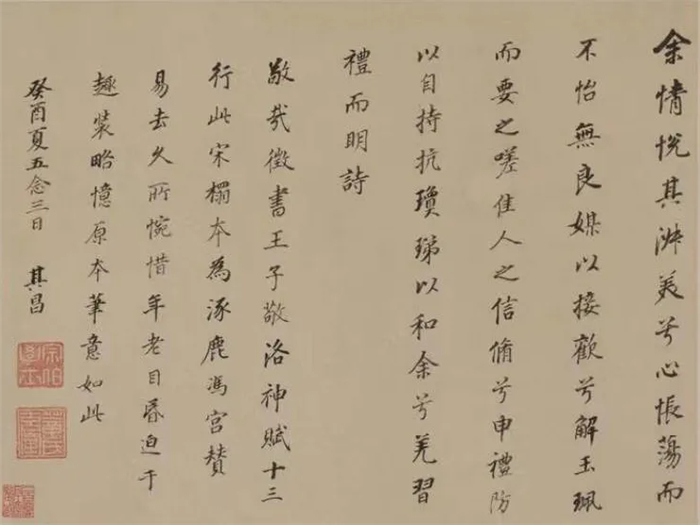 余情悅其淋美兮心悵蕩而
不怡無良媒以接歡兮解玉珮
而要之嗟佳人之信脩兮申禮防
以自持抗瓊珶以和余兮羌習
禮而明詩
敬哉徵書王子敬洛神賦十三
行此宋榻本為涿鹿馮宮贊
易去久所惋惜年老目昏迫于
趣裝略憶原本筆意如此
癸酉夏五念三日 其昌
宗伯